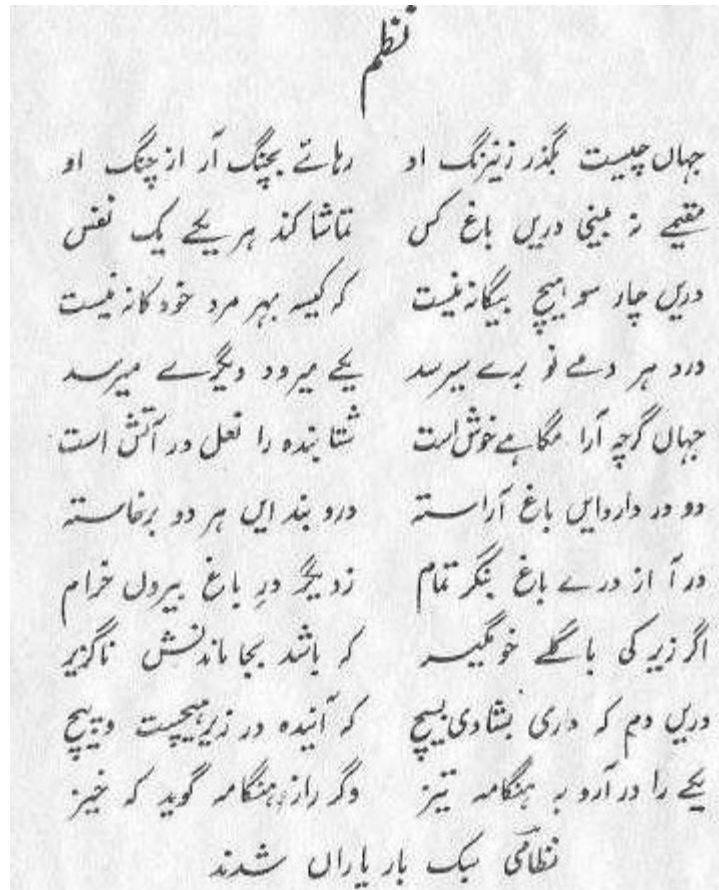 نظم
جہاں چیست بگذر ز نیرنگ او رہائے بچنگ آر از چنگ او
مقیمے نہ بینی دریں باغ کس تماشا کند ہر یکے یک نفس
دریں چار سو ہیچ بیگانہ نیست کہ کیسہ بہر مرد خود کانہ نیست
درد ہر دمے نو برے میرسد یکے میرود دیگرے میرسد
جہاں گرچہ آرا مگاہے خوش است شتا بندہ را نعل در آتش است
دو در داردایں باغ آراستہ درو بند ایں ہر دو برخاستہ
در آ از درے باغ بنگر تمام ز دیگر درِ باغ بیروں خرام
اگر زیر کی با گلے خو مگیر کہ باشد بجا ماندنش ناگزیر
دریں دم کہ داری بشادی بسیچ کہ آئندہ در زیر ہیچست و ہیچ
یکے را در آرد بہ ہنگامہ تیز وگر راز ہنگامہ گوید کہ خیز
نظامی سبک بار یاراں شدند